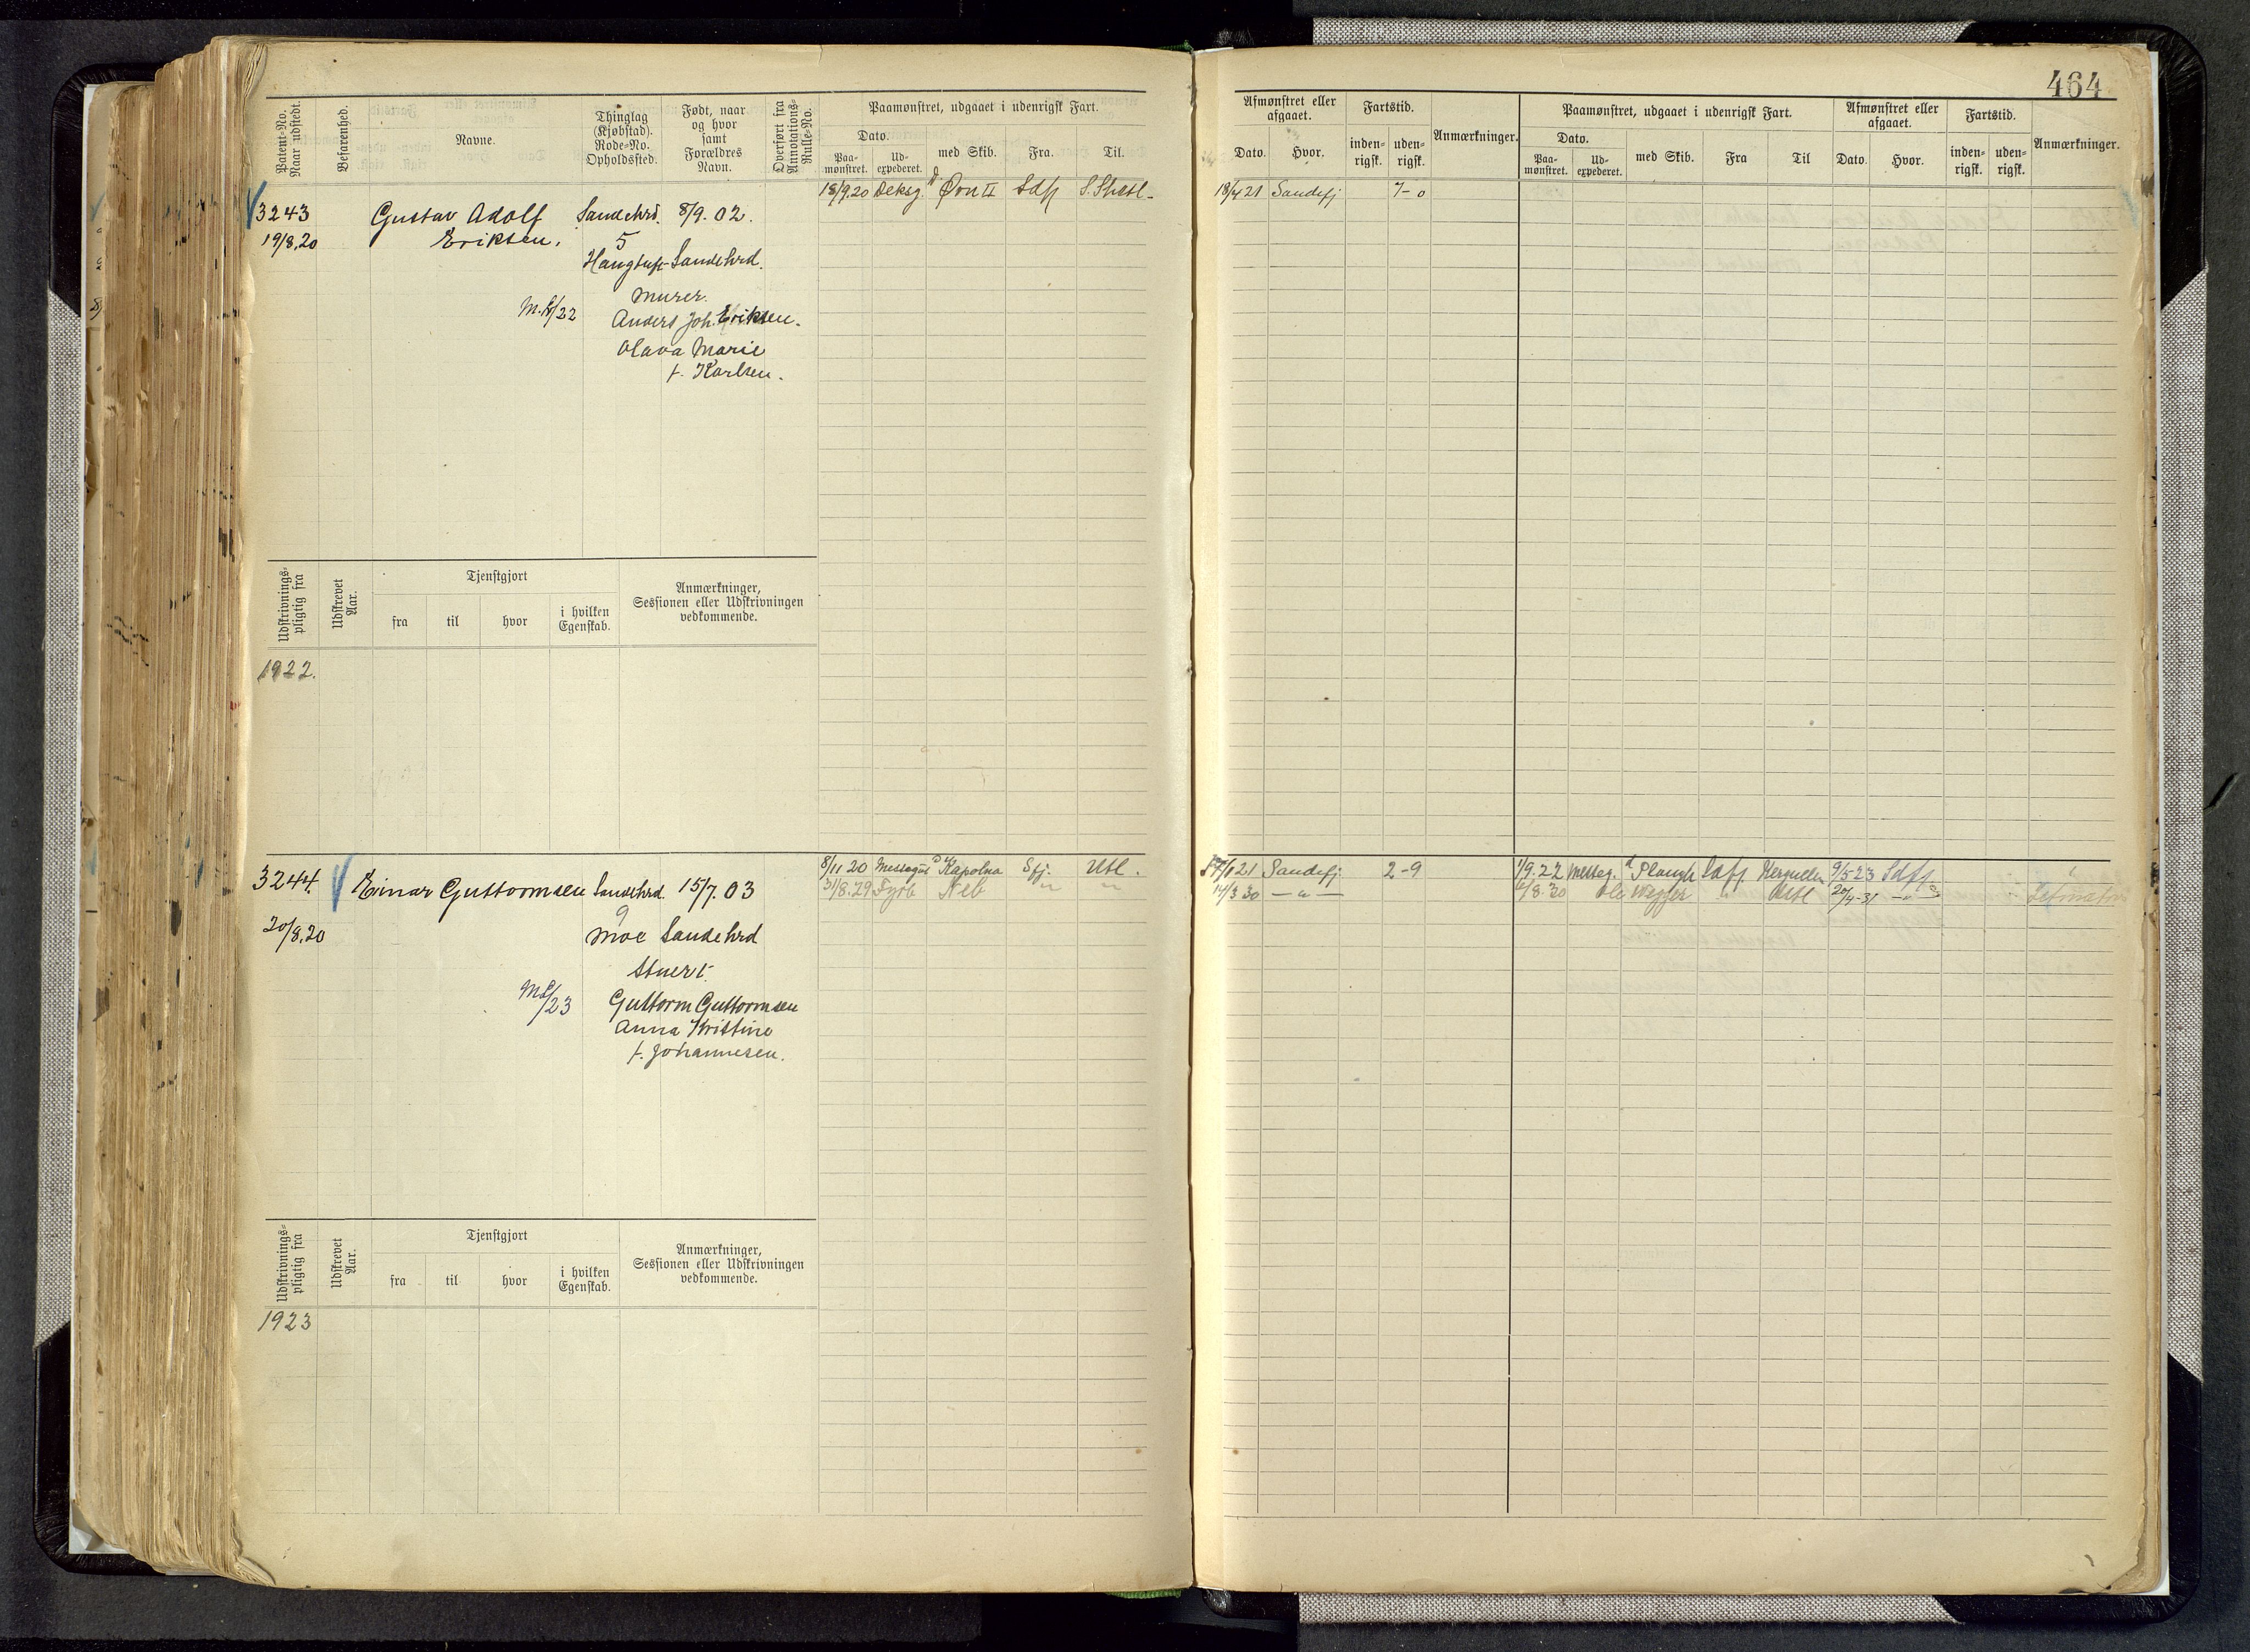 464
Patent-No. Naar udstedt.
Befarenhed.
Navne.
Thinglag (Kjøbstad). Rode-No. Opholdssted.
Født, naar og hvor samt Forældres Navn.
Overført fra Annotations-Rulle-No.
Paamønstret, udgaaet i udenrigsk Fart.
Dato.
Paa-mønstret.
Ud-expederet.
med Skib.
Fra.
Til.
Afmønstret eller afgaaet.
Dato.
Hvor.
Fartstid.
inden-rigsk.
uden-rigsk.
Anmærkninger.
Paamønstret, udgaaet i udenrigsk Fart.
Dato.
Paa-mønstret.
Ud-expederet.
med Skib.
Fra
Til
Afmønstret eller afgaaet.
Dato.
Hvor.
Fartstid.
inden-rigsk.
uden-rigsk.
Anmærkninger.
18/9.20 Deksg. Ørn II Sdfj S. Shetl.
18/4 21 Sandefj 7-0
3243 Gustav Adolf Sandehrd. 8/9.02.
19/8.20 Eriksen. 5
Haugtuft Sandehrd.
Murer.
M.S/22 Anders Joh. Eriksen.
Olava Marie
f. Karlsen.
Udskrivnings-pligtig fra
Udskrevet Aar.
Tjenstgjort
fra
til
hvor
i hvilken Egenskab.
Anmærkninger, Sessionen eller Udskrivningen vedkommende.
1922.
8/11 20 Messegut Kapolna Sfj. Utl.
21 Sandefj. 2-9
1/9.22 Melkeg. Plaugh Safj Kerguelen 9/5-23 Sdfj
3244. Einar Guttormsen Sandehrd. 15/7.03
31/8.29 Fyrb Neb " "
14/3 30 - " -
/8.30 Ole Wegger " Utl 20/4-31 - " -
20/8.20 9
Moe Sandehrd
Stuert.
MS/23 Guttorm Guttormsen
Anna Kristine
f. Johannesen.
Udskrivnings-pligtig fra
Udskrevet Aar.
Tjenstgjort
fra
til
hvor
i hvilken Egenskab.
Anmærkninger, Sessionen eller Udskrivningen vedkommende.
1923